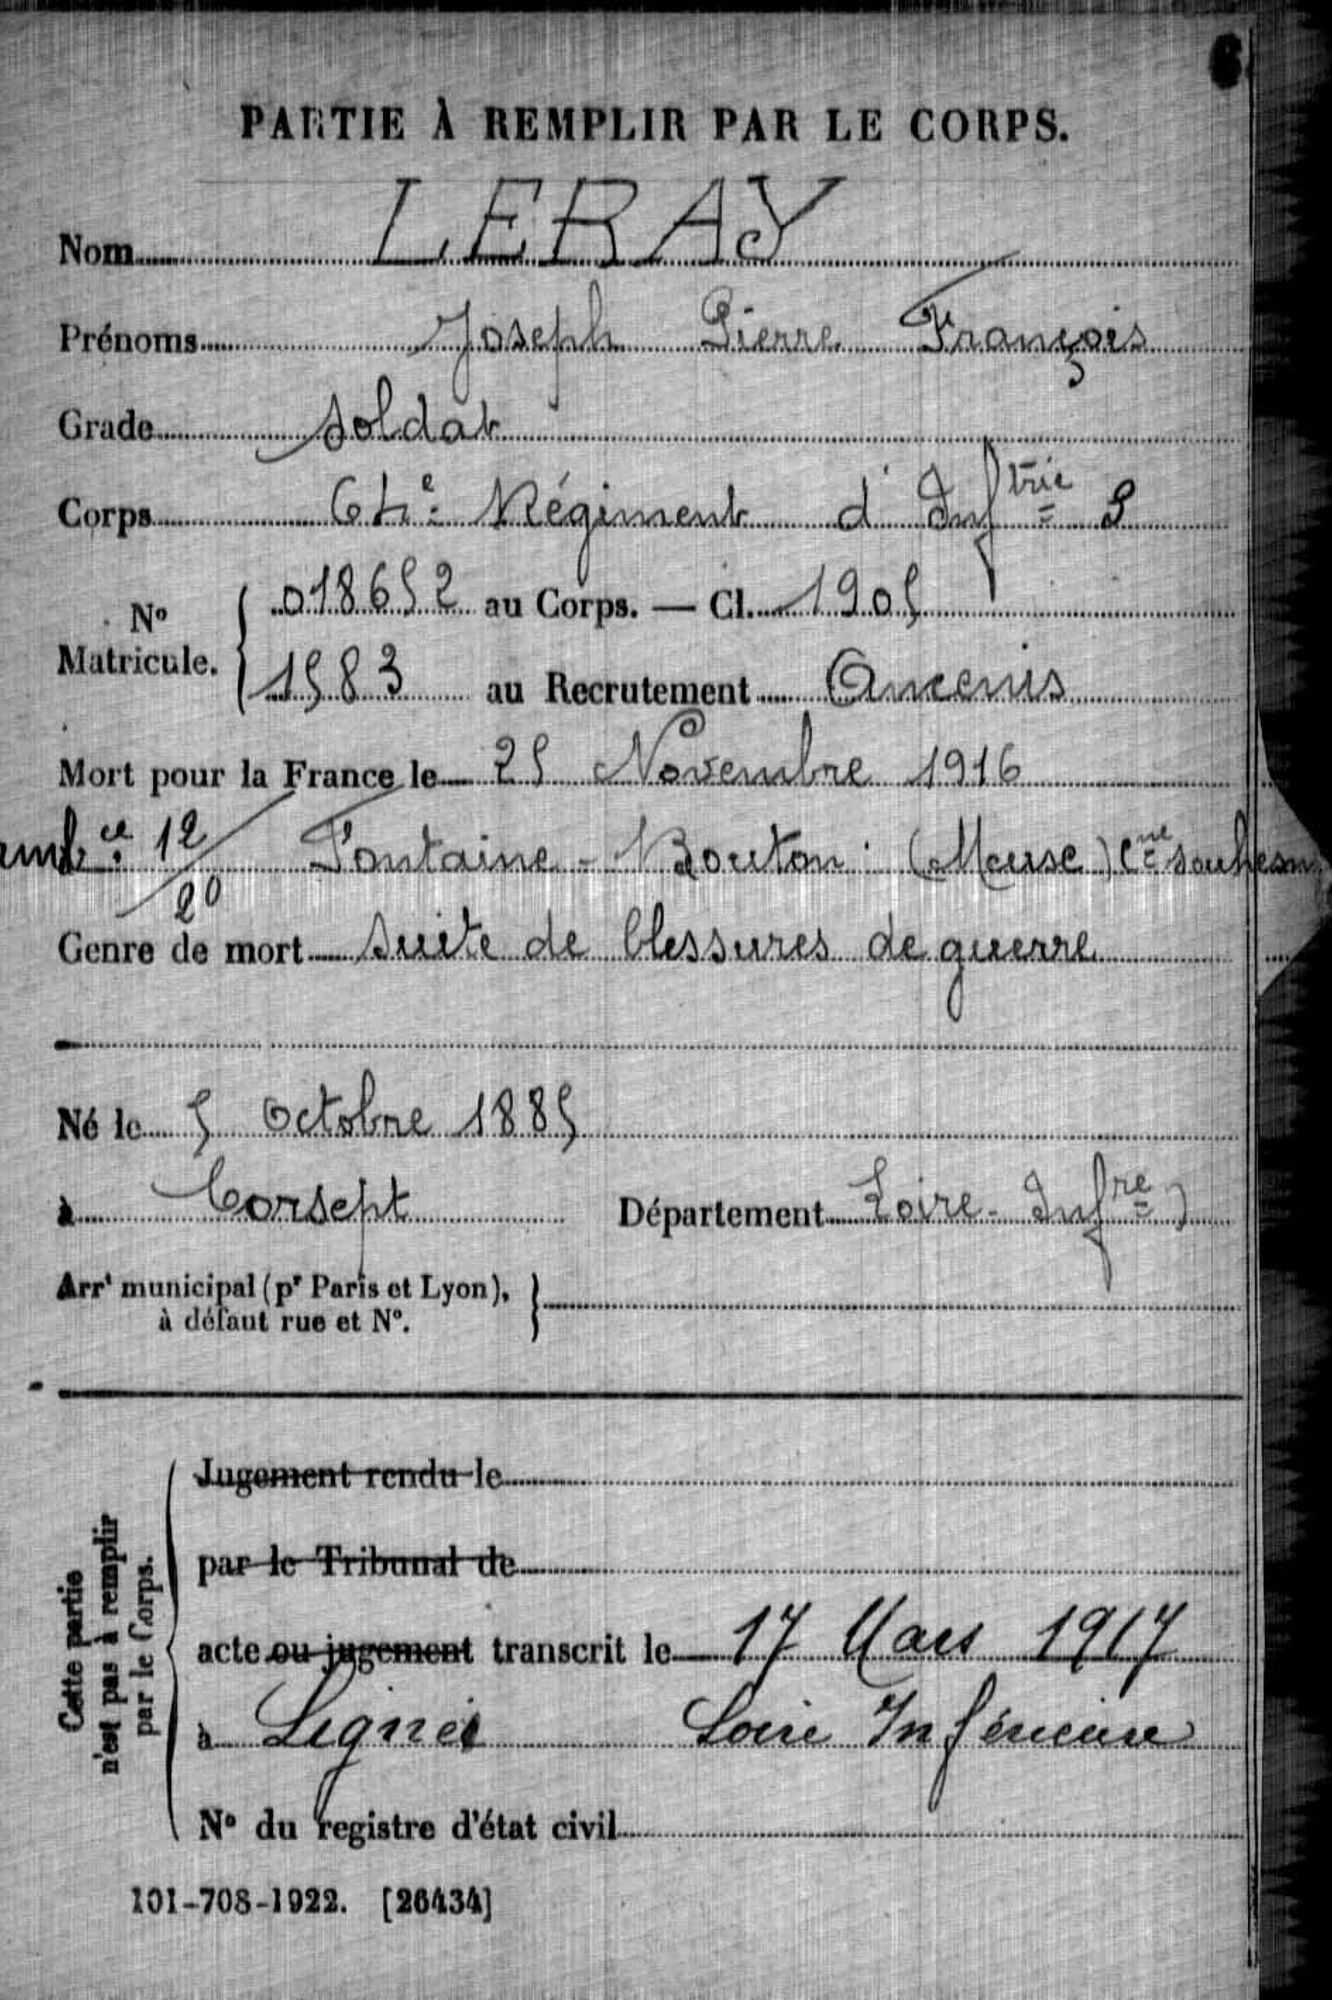 6
PARTIE À REMPLIR PAR LE CORPS.
Nom LERAY
Prénoms Joseph Pierre François
Grade soldat
Corps 64e Régiment d'Inftrie
No Matricule. { 018652 au Corps. — Cl. 1905
1583 au Recrutement Ancenis
Mort pour la France le 25 Novembre 1916
ambce 12/20 Fontaine-Bouton (Meuse) Cne souhesm
Genre de mort suite de blessures de guerre
Né le 5 Octobre 1885
à Corsept Département Loire-Infre)
Arrt municipal (pr Paris et Lyon),
à défaut rue et No.
Cette partie n'est pas à remplir par le Corps.
Jugement rendu le
par le Tribunal de
acte ou jugement transcrit le 17 Mars 1917
à Ligné Loire Inférieure
No du registre d'état civil
101-708-1922. [26434]